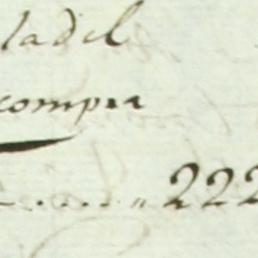 ladel
compra
222